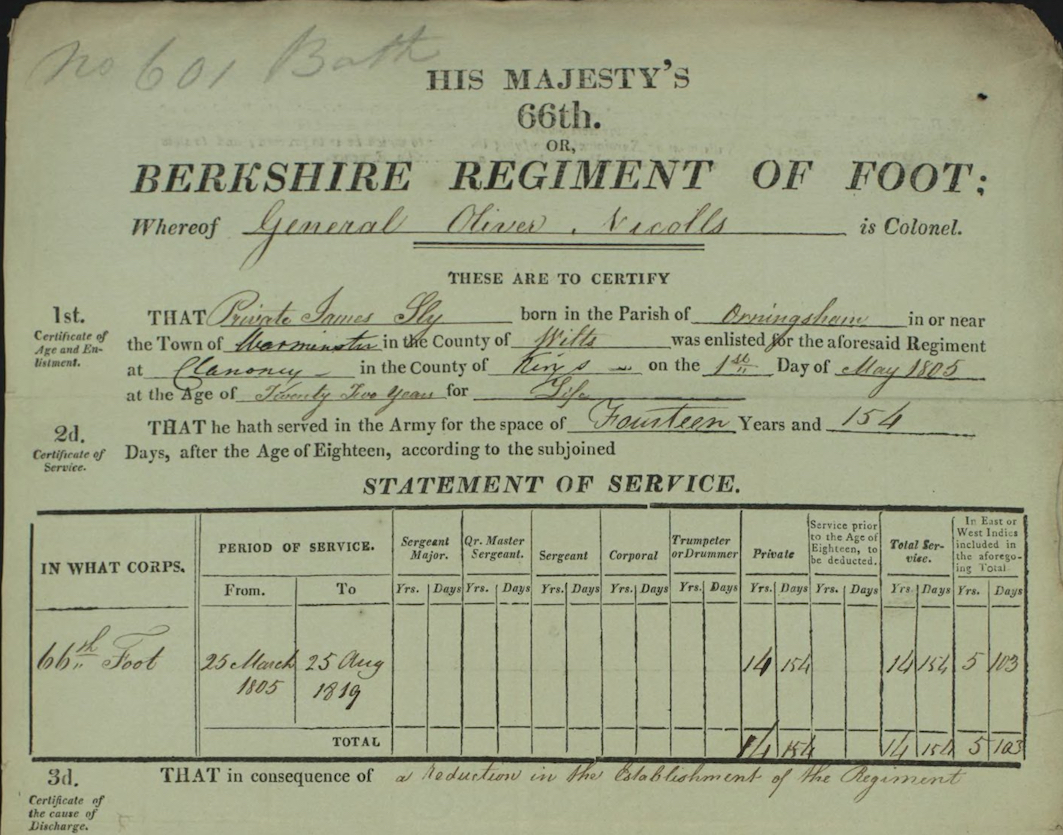 No 601 Bath
HIS MAJESTY'S
66th.
OR,
BERKSHIRE REGIMENT OF FOOT;
Whereof General Oliver Nicolls is Colonel.
THESE ARE TO CERTIFY
1st.
Certificate of
Age and En-
listment.
THAT Private James Sly born in the Parish of Orningsham in or near
the Town of Warminster in the County of Wilts was enlisted for the aforesaid Regiment
at Clanoney in the County of Kings on the 1st Day of May 1805
at the Age of Twenty Two Years for Life
2d.
Certificate of
Service.
THAT he hath served in the Army for the space of Fourteen Years and 154
Days, after the Age of Eighteen, according to the subjoined
STATEMENT OF SERVICE.
IN WHAT CORPS. PERIOD OF SERVICE. Sergeant Major. Qr. Master Sergeant. Sergeant Corporal Trumpeter or Drummer Private Service prior to the Age of Eighteen, to be deducted. Total Ser-vice. In East or West Indies included in the aforego-ing Total
From. To Yrs. Days Yrs. Days Yrs. Days Yrs. Days Yrs. Days Yrs. Days Yrs. Days Yrs. Days Yrs. Days
66th Foot 25 March 25 Aug 14 154 14 154 5 103
1805 1819
TOTAL 14 154 14 154 5 103
3d.
Certificate of
the cause of
Discharge.
THAT in consequence of a reduction in the Establishment of the Regiment